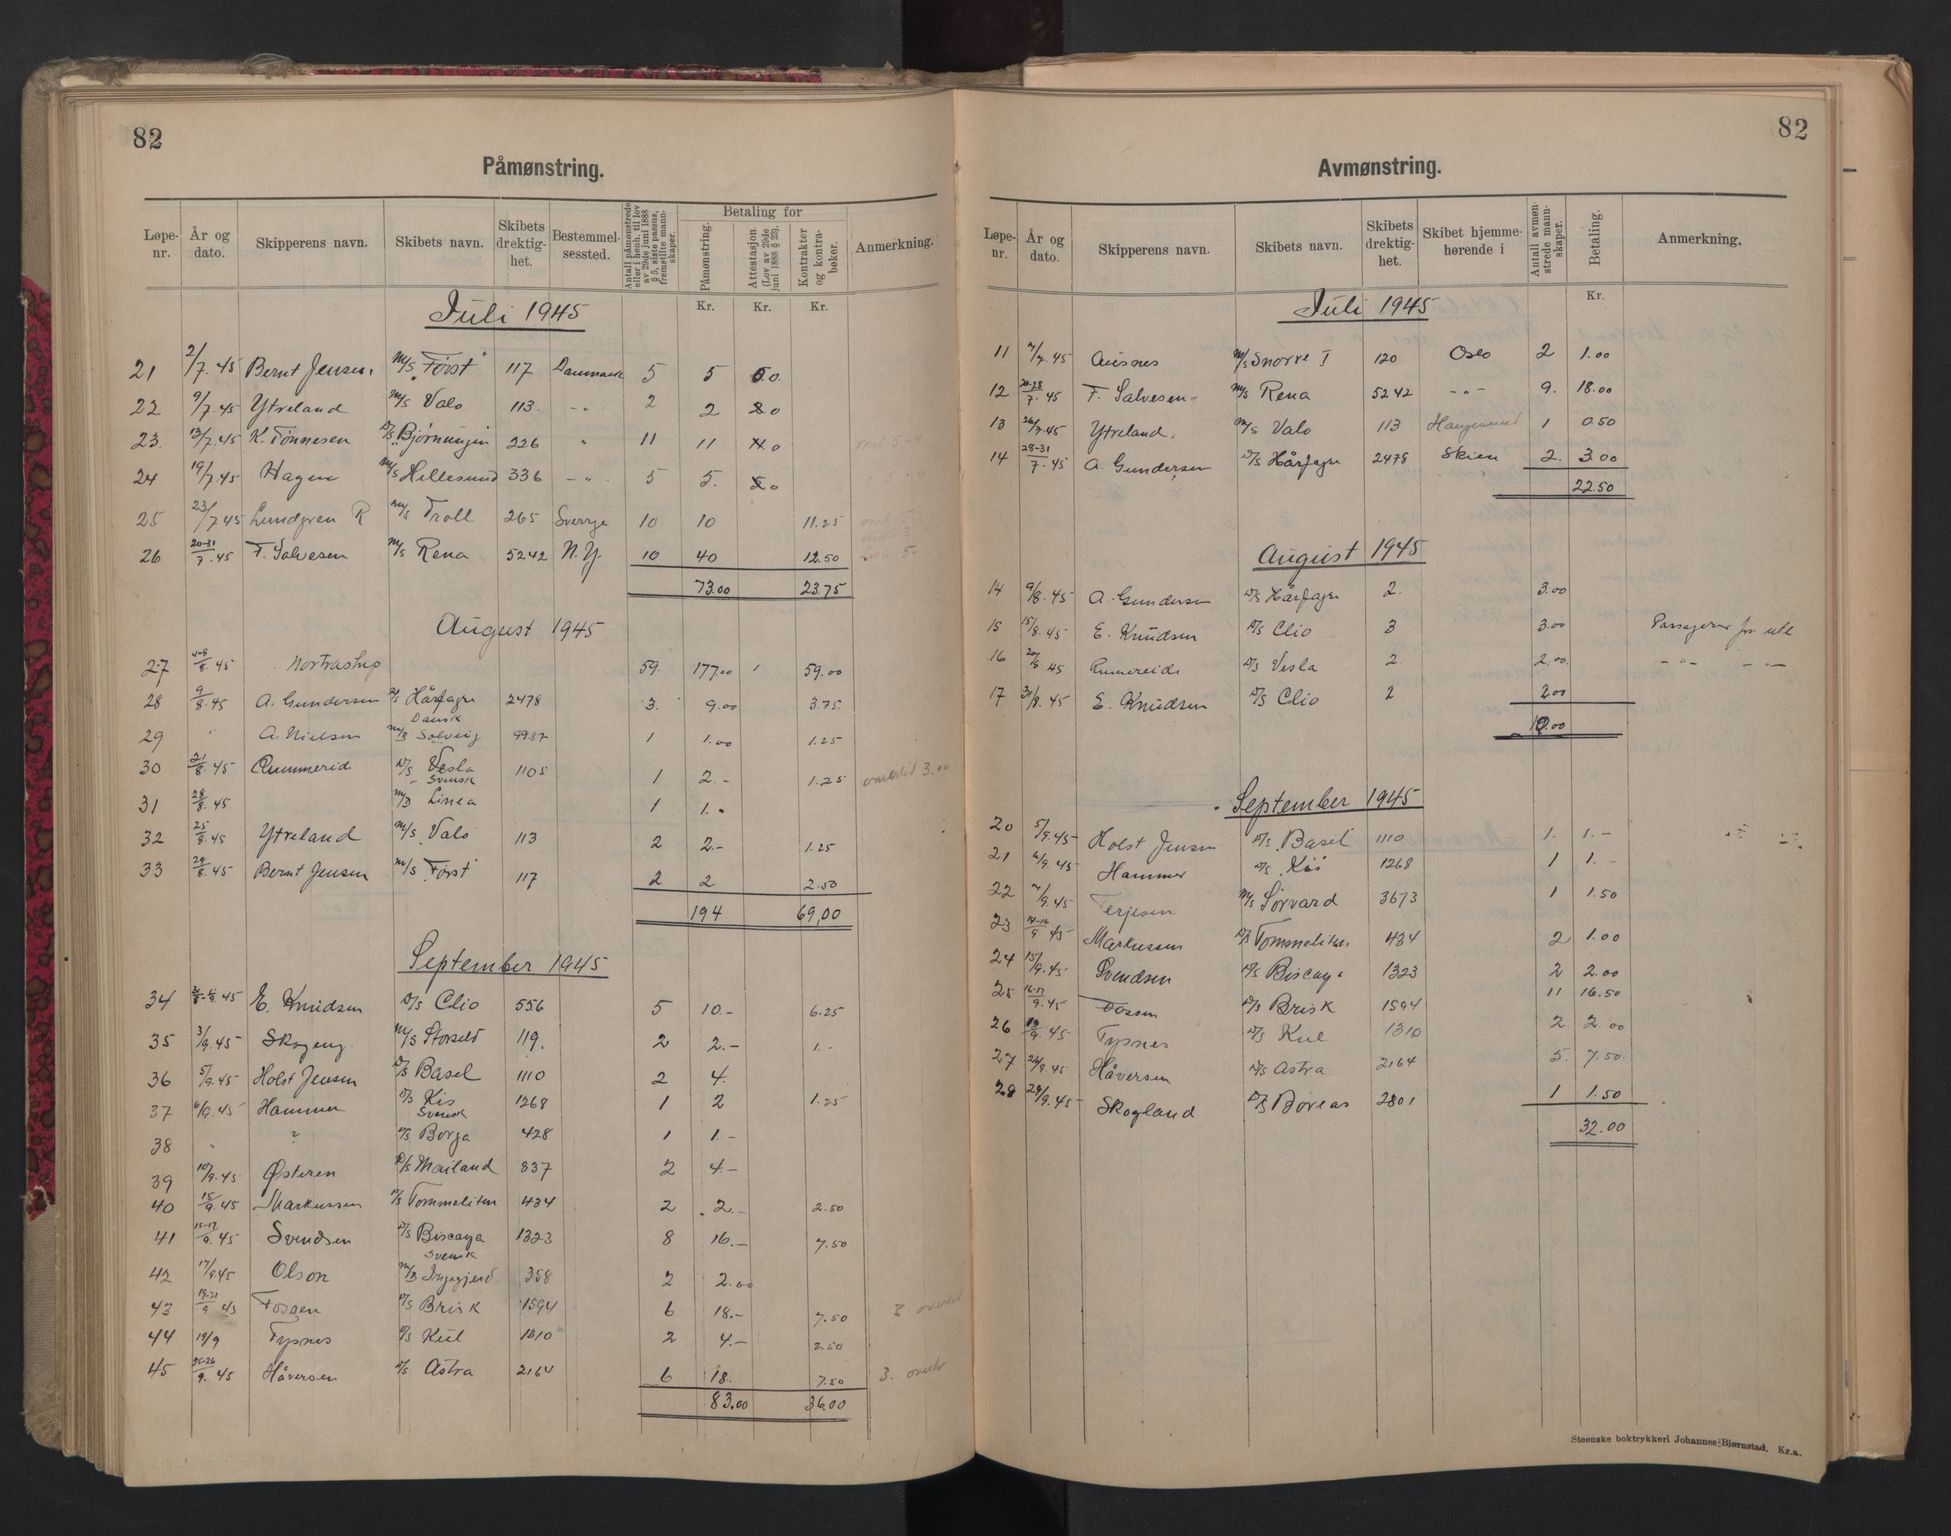 82
Påmønstring.
Løpenr. År og dato. Skipperens navn. Skibets navn. Skibets drektighet. Bestemmelsessted. Antall påmønstrede eller i henh. til lov av 29de juni 1888 § 5, siste passus, fremstilte mannskaper. Betaling for Påmønstring. Attestasjon. (Lov av 29de juni 1888 § 23). Kontrakter og kontrabøker. Anmerkning.
Kr. Kr. Kr.
Juli 1945
21 2/7.45 Bernt Jensen M/S "Først" 117 Danmark 5 5
22 9/7.45 Ytreland M/S Valo 113. -"- 2 2
23. 13/7.45 K. Tønnesen D/S Bjørnungen 226 " 11 11
24 19/7.45 Hagen M/S Hillesund 336 -"- 5 5.
25 23/7 45 Lundgren R M/S Troll 265 Sverrge 10 10 11.25
26 20-31/7.45 F. Salvesen M/S Rena 5242 N.Y. 10 40 12.50
73.00 23.75
August 1945
27 4-8/8.45 Nortraship 59. 177.00 59.00
28 9/8.45 A. Gundersen D/S Hårfagre 2478 3. 9.00 3.75
Dansk
29 " A. Nielsen M/B Solveig 99.87 1 1.00 1.25
30 21/8.45 Rummereid D/S Vesla 1105 1 2.- 1.25 overtid 3.00
Svensk
31 28/8.45 M/B Linea 1 1.
32 25/8.45 Ytreland M/S Valo 113 2 2.- 1.25
33 29/8.45 Bernt Jensen M/S "Først" 117 2 2 2.50
194 69,00
September 1945
34 45 E. Knudsen D/S Clio 556 5 10.- 6.25
35 3/9.45 Skogeng. M/S Storsild 119. 2 2.- 1.-
36 5/9.45 Holst Jensen D/S Basel 1110 2 4.
37 6/9.45 Hammer D/S Kis 1268 1 2 1.25
Svensk
38 " ? D/S Borga 428 1 1.-
39 10/9.45 Østeren D/S Mailand 837 2 4.-
40 15/9.45 Markussen D/S Tommeliten 434 2 2.- 2.50
41 15-17/9.45 Svendsen D/S Biscaya 1323 8 16.- 7.50
Svensk
42 17/9 45 Olson M/B Ingegjerd 358 2 2.00
43 19-21/9 45 Fossen D/S Brisk 1594 6 18.- 7.50 3 overtid
44 19/9 Typnes D/S Kul 1310 2 4.- 2.50
45 25-26/9.45 Håversen D/S Astra 2164 6 18. 7.50 3. overt
83.00 36.00
82
Avmønstring.
Løpenr. År og dato. Skipperens navn. Skibets navn. Skibets drektighet. Skibet hjemmehørende i Antall avmønstrede mannskaper. Betaling. Anmerkning.
Kr.
Juli 1945
11 2/7.45 Ausnes M/S Snorre I 120 Oslo 2 1.00
12 20-28/7.45 F. Salvesen M/S Rena 5242 -"- 9. 18.00
13 26/7.45 Ytreland. M/S Valo 113 Haugesund 1 0.50
14 28-31/7.45 A. Gundersen D/S Hårfagre 2478 Skien 2. 3.00
22.50
August 1945
14 9/8.45 A. Gundersen D/S Hårfagre 2. 3.00
15 15/8.45 E. Knudsen D/S Clio 3 3.00 Passagerer fra utl
16 20/8 45 Rumereide D/S Vesla 2. 2.00. -"- -"-
17 31/8.45 E. Knudsen D/S Clio 2 2.00
10.00
September 1945
20 5/9.45 Holst Jensen D/S Basel 1110 1. 1.-
21 6/9.45 Hammer D/S Kis 1268 1 1.-
22 45 Terjesen M/S Sørvard 3673 1 1.50
23 14-16/9 45 Markussen D/S Tommeliten 434 2 1.00
24 15/9.45 Svendsen D/S Biscaya 1323 2 2.00
25 16-17/9.45 Fossen D/S Brisk 1594 11 16.50
26 19/9.45 Typnes D/S Kul 1310 2. 2.00
27 26/9.45 Håversen D/S Astra 2164 5. 7.50.
28 29/9.45 Skogland D/S Boreas 2801 1 1.50
32.00
Steenske boktrykkeri Johannes Bjørnstad. Kr.a.